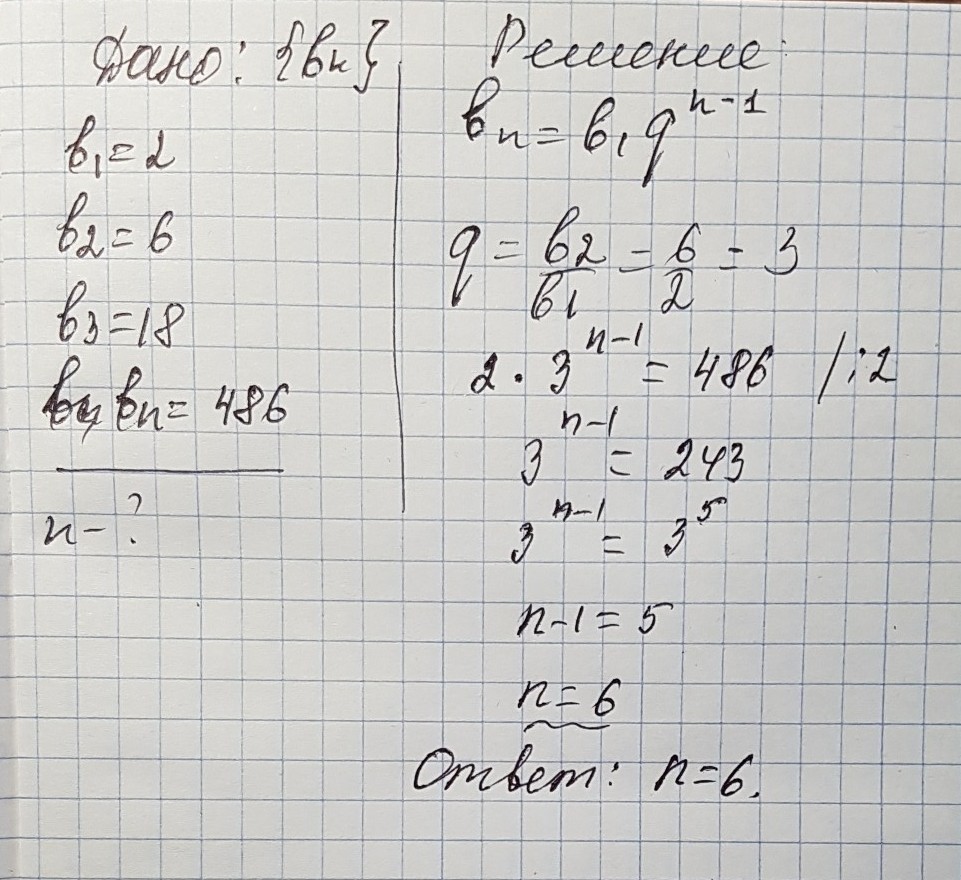 Дано: {bn}
b1 = 2
b2 = 6
b3 = 18
bn = 486
n - ?
Решение:
bn = b1 q^(n-1)
q = b2/b1 = 6/2 = 3
2 · 3^(n-1) = 486 /:2
3^(n-1) = 243
3^(n-1) = 3^5
n-1 = 5
n = 6
Ответ: n=6.